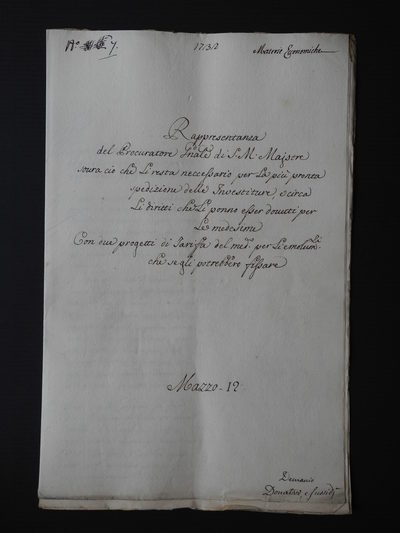 N.º 7.
1732
Materie Economiche
Rappresentanza
del Procuratore Gñale di S. M. Majsere
soura ciò che Li resta neccessario per La più pronta
spedizione delle Investiture, e circa
Li diritti che Li ponno esser douutti per
Le medesime
Con due progetti di Tariffa del med.º per Li emolum.ti
che se gli potrebbero fissare
Mazzo - 12
Demanio
Donativi e sussidj